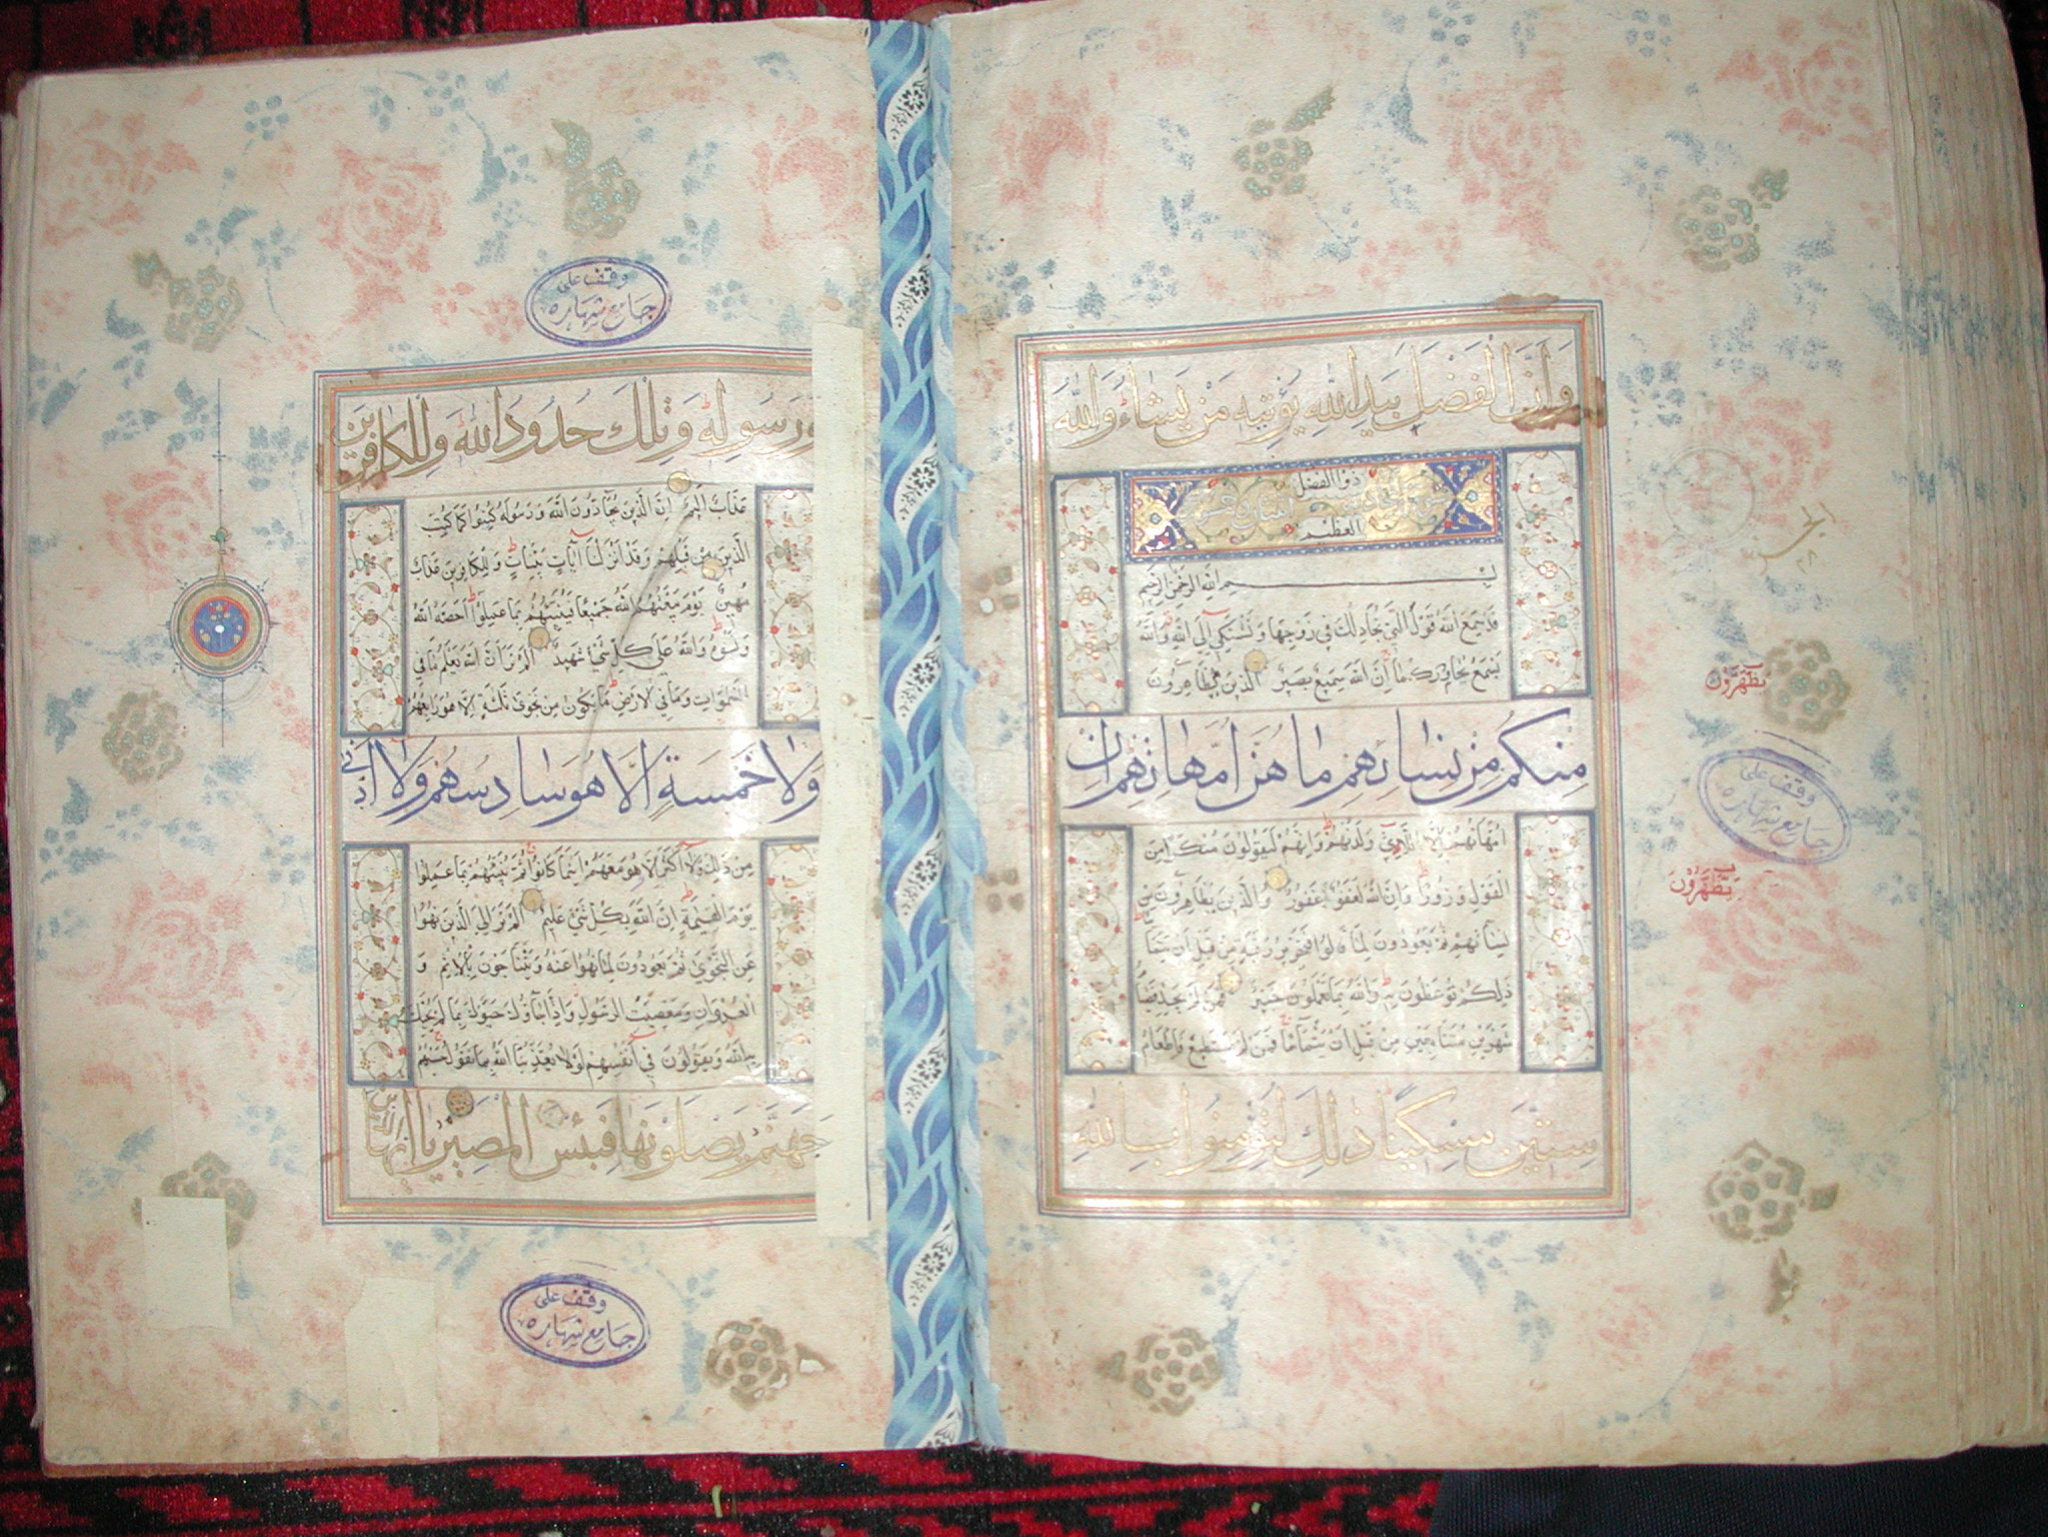 وَأَنَّ الْفَضْلَ بِيَدِ اللَّهِ يُؤْتِيهِ مَنْ يَشَاءُ وَاللَّهُ
ذُو الْفَضْلِ
الْعَظِيمِ
بِسْمِ اللَّهِ الرَّحْمَنِ الرَّحِيمِ
قَدْ سَمِعَ اللَّهُ قَوْلَ الَّتِي تُجَادِلُكَ فِي زَوْجِهَا وَتَشْتَكِي إِلَى اللَّهِ وَاللَّهُ
يَسْمَعُ تَحَاوُرَكُمَا إِنَّ اللَّهَ سَمِيعٌ بَصِيرٌ الَّذِينَ يُظَاهِرُونَ
مِنْكُمْ مِنْ نِسَائِهِمْ مَا هُنَّ أُمَّهَاتِهِمْ إِنْ
أُمَّهَاتُهُمْ إِلَّا اللَّائِي وَلَدْنَهُمْ وَإِنَّهُمْ لَيَقُولُونَ مُنْكَرًا مِنَ
الْقَوْلِ وَزُورًا وَإِنَّ اللَّهَ لَعَفُوٌّ غَفُورٌ وَالَّذِينَ يُظَاهِرُونَ مِنْ
نِسَائِهِمْ ثُمَّ يَعُودُونَ لِمَا قَالُوا فَتَحْرِيرُ رَقَبَةٍ مِنْ قَبْلِ أَنْ يَتَمَاسَّا
ذَلِكُمْ تُوعَظُونَ بِهِ وَاللَّهُ بِمَا تَعْمَلُونَ خَبِيرٌ فَمَنْ لَمْ يَجِدْ فَصِيَامُ
شَهْرَيْنِ مُتَتَابِعَيْنِ مِنْ قَبْلِ أَنْ يَتَمَاسَّا فَمَنْ لَمْ يَسْتَطِعْ فَإِطْعَامُ
سِتِّينَ مِسْكِينًا ذَلِكَ لِتُؤْمِنُوا بِاللَّهِ
يَظَّهَّرُونَ
وقف على
جامع شهاره
يَظَّهَّرُونَ
وقف على
جامع شهاره
وَرَسُولِهِ وَتِلْكَ حُدُودُ اللَّهِ وَلِلْكَافِرِينَ
عَذَابٌ أَلِيمٌ إِنَّ الَّذِينَ يُحَادُّونَ اللَّهَ وَرَسُولَهُ كُبِتُوا كَمَا كُبِتَ
الَّذِينَ مِنْ قَبْلِهِمْ وَقَدْ أَنْزَلْنَا آيَاتٍ بَيِّنَاتٍ وَلِلْكَافِرِينَ عَذَابٌ
مُهِينٌ يَوْمَ يَبْعَثُهُمُ اللَّهُ جَمِيعًا فَيُنَبِّئُهُمْ بِمَا عَمِلُوا أَحْصَاهُ اللَّهُ
وَنَسُوهُ وَاللَّهُ عَلَى كُلِّ شَيْءٍ شَهِيدٌ أَلَمْ تَرَ أَنَّ اللَّهَ يَعْلَمُ مَا فِي
السَّمَوَاتِ وَمَا فِي الْأَرْضِ مَا يَكُونُ مِنْ نَجْوَى ثَلَثَةٍ إِلَّا هُوَ رَابِعُهُمْ
وَلَا خَمْسَةٍ إِلَّا هُوَ سَادِسُهُمْ وَلَا أَدْنَى
مِنْ ذَلِكَ وَلَا أَكْثَرَ إِلَّا هُوَ مَعَهُمْ أَيْنَمَا كَانُوا ثُمَّ يُنَبِّئُهُمْ بِمَا عَمِلُوا
يَوْمَ الْقِيَمَةِ إِنَّ اللَّهَ بِكُلِّ شَيْءٍ عَلِيمٌ أَلَمْ تَرَ إِلَى الَّذِينَ نُهُوا
عَنِ النَّجْوَى ثُمَّ يَعُودُونَ لِمَا نُهُوا عَنْهُ وَيَتَنَاجَوْنَ بِالْإِثْمِ وَ
الْعُدْوَانِ وَمَعْصِيَتِ الرَّسُولِ وَإِذَا جَاؤُكَ حَيَّوْكَ بِمَا لَمْ يُحَيِّكَ
بِهِ اللَّهُ وَيَقُولُونَ فِي أَنْفُسِهِمْ لَوْلَا يُعَذِّبُنَا اللَّهُ بِمَا نَقُولُ حَسْبُهُمْ
جَهَنَّمُ يَصْلَوْنَهَا فَبِئْسَ الْمَصِيرُ يَا أَيُّهَا الَّذِينَ
وقف على
جامع شهاره